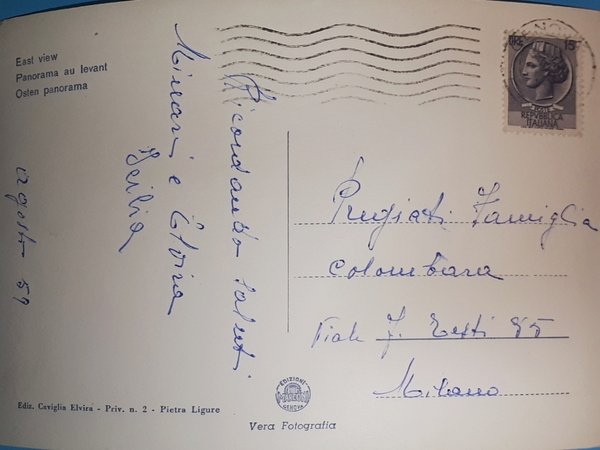 East view
Panorama au levant
Osten panorama
Ricordando saluti
Minari e Elvira
agosto 59
LIRE 15
POSTE
REPVBBLICA
ITALIANA
Pregiati Famiglia
Colombara
Viale F. Testi 85
Milano
EDIZIONI
GENOVA
Ediz. Caviglia Elvira - Priv. n. 2 - Pietra Ligure
Vera Fotografia